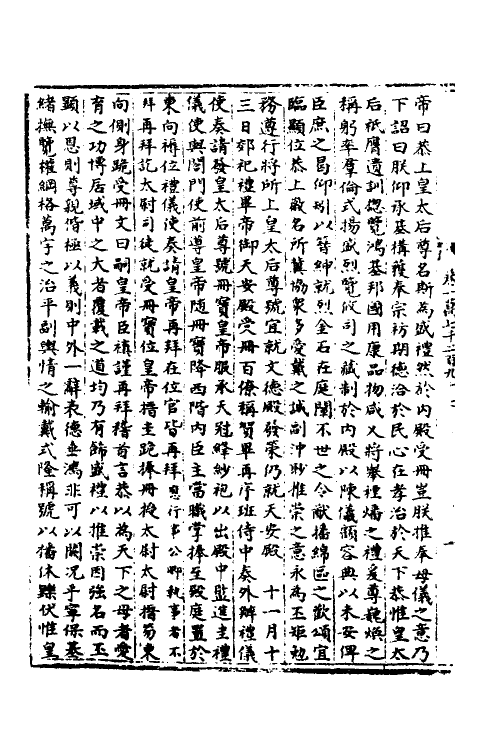 帝曰恭上皇太后尊名斯為盛禮然於內殿受冊豈朕推奉母儀之意乃
下詔曰朕仰承基構獲奉宗祊期德洽於民心在孝治於天下恭惟皇太
后祇膺遺訓總覽鴻基邦國用康品物咸乂將舉禋燔之禮爰尊巍煥之
稱躬率羣倫式揚盛烈覽攸司之誠制於內殿以陳儀顧容典以未安俾
臣庶之曷仰矧以等紳就列金石在庭闡不世之令猷播綿區之歡頌宜
臨顯位恭上嚴名所冀協衆多愛戴之誠副沖眇推崇之意永為丕矩勉
務遵行將所上皇太后尊號宜就文德殿發策仍就天安殿　十一月十
三日郊祀禮畢帝御天安殿受冊百僚稱賀畢再序班侍中奏外辦禮儀
使奏請發皇太后尊號冊寶皇帝服承天冠絳紗袍以出殿中監進圭禮
儀使與閤門使前導皇帝隨冊寶降西階內臣主當職掌捧至殿庭置於
東向褥位禮儀使奏請皇帝再拜在位官皆再拜思行事公卿執事者不
拜再拜訖太尉司徒就受冊寶位皇帝搢圭跪捧冊授太尉太尉搢笏東
向側身跪受冊文曰嗣皇帝臣禎謹再拜稽首言恭以為天下之母者愛
育之功博居域中之大者覆載之道均乃有飾盛禮以推崇因強名而丕
顯以恩則尊親偕極以義則中外一辭表德垂鴻非可以闕况乎寧保基
緒撫覽權綱格萬宇之治平副輿情之輸戴式隆稱號以播休鑠伏惟皇